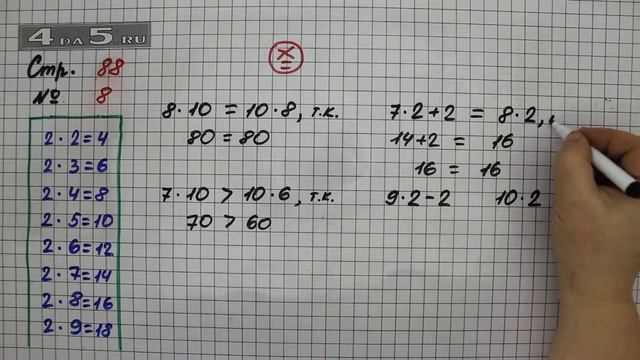 4 DA 5.RU
Стр. 88
№ 8
2 · 2 = 4
2 · 3 = 6
2 · 4 = 8
2 · 5 = 10
2 · 6 = 12
2 · 7 = 14
2 · 8 = 16
2 · 9 = 18
8 · 10 = 10 · 8, т.к.
80 = 80
7 · 10 > 10 · 6, т.к.
70 > 60
7 · 2 + 2 = 8 · 2,
14 + 2 = 16
16 = 16
9 · 2 - 2 10 · 2